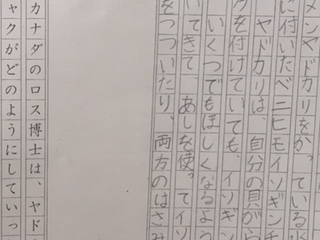 メンヤドカリをかっている水
に付いたベニヒモイソギンチ
ヤドカリは、自分の貝がら
クを付けていても、イソギン
いくつでもほしくなるよう
いてきて、あしを使ってイソ
をつついたり、両方のはさみ
カナダのロス博士は、ヤド
ャクがどのようにしていっ